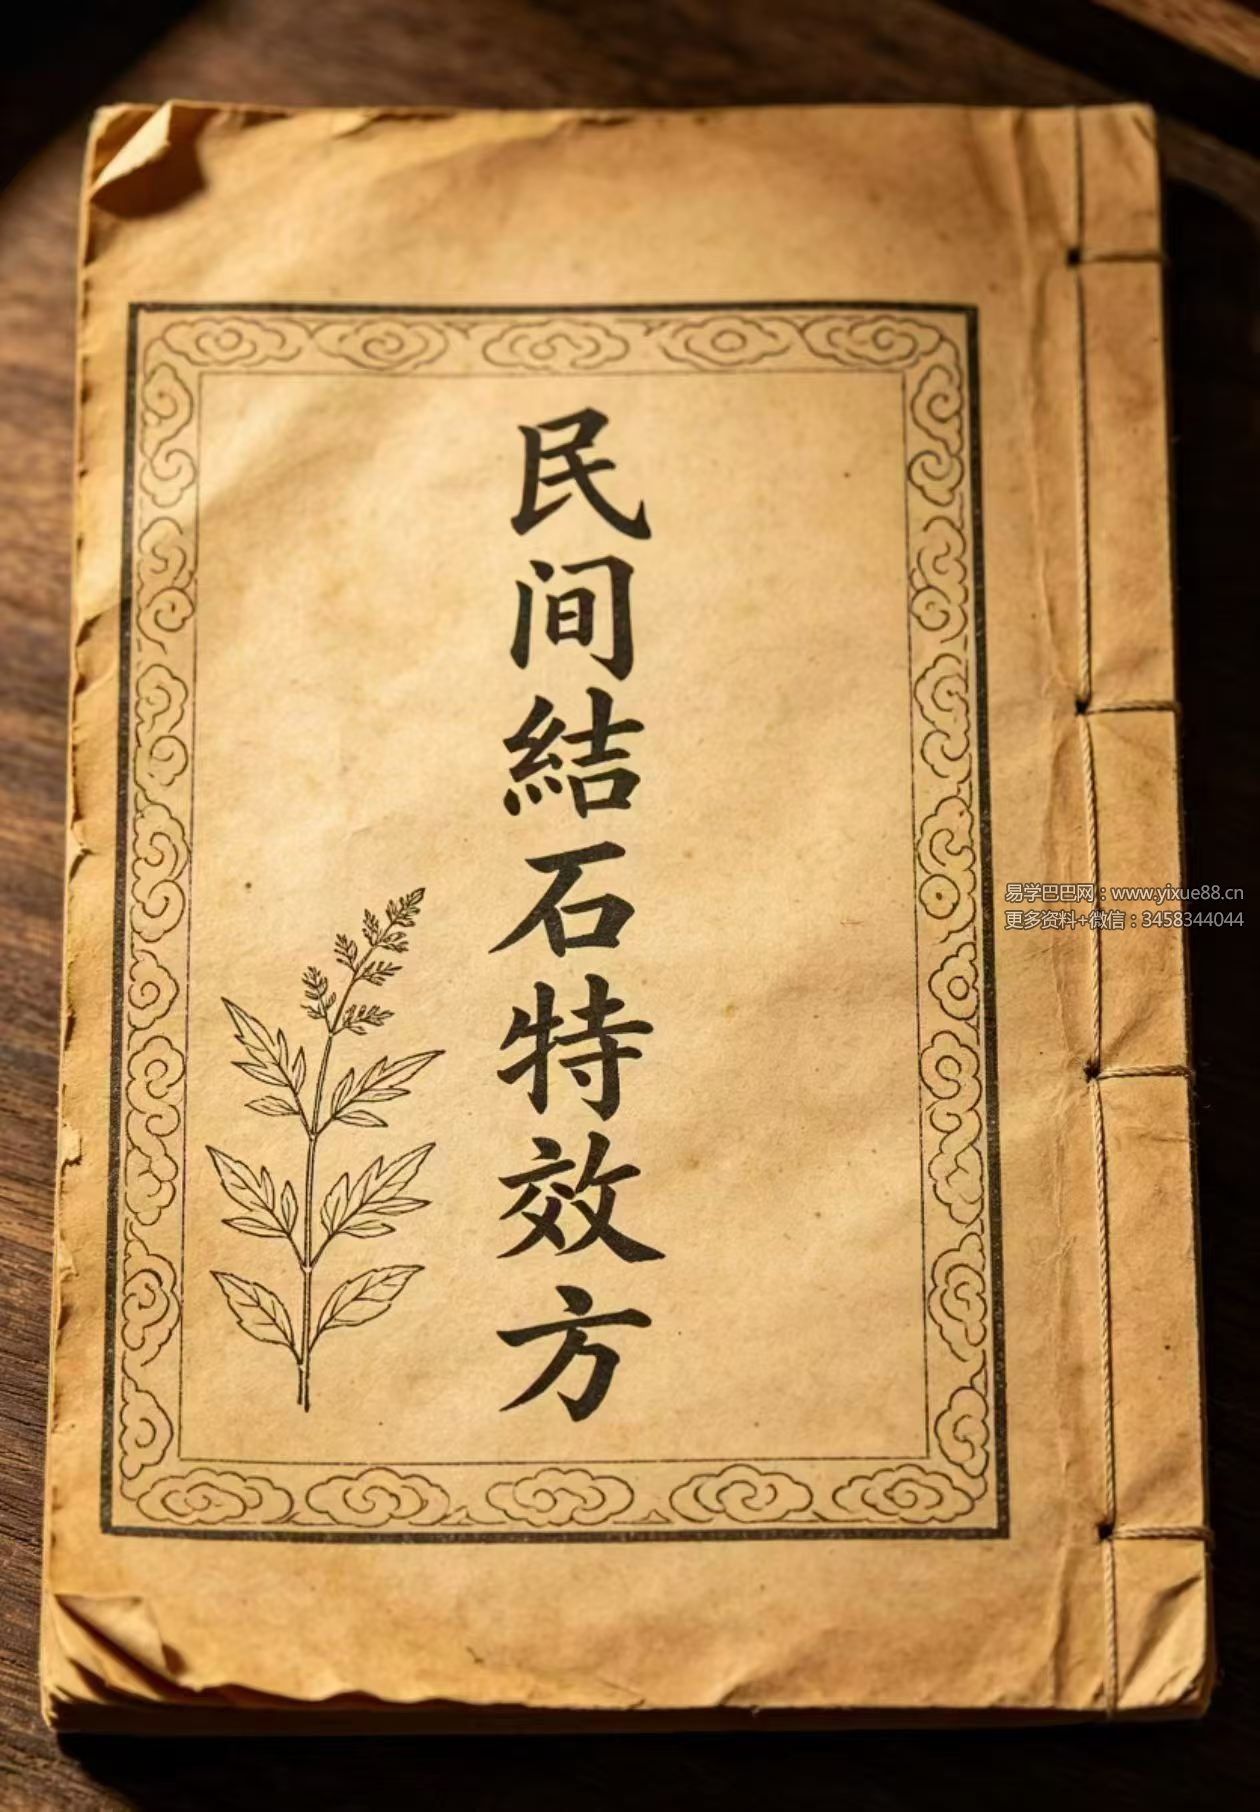 民间結石特效方
易学巴巴网：www.yixue88.cn
更多资料+微信：3458344044